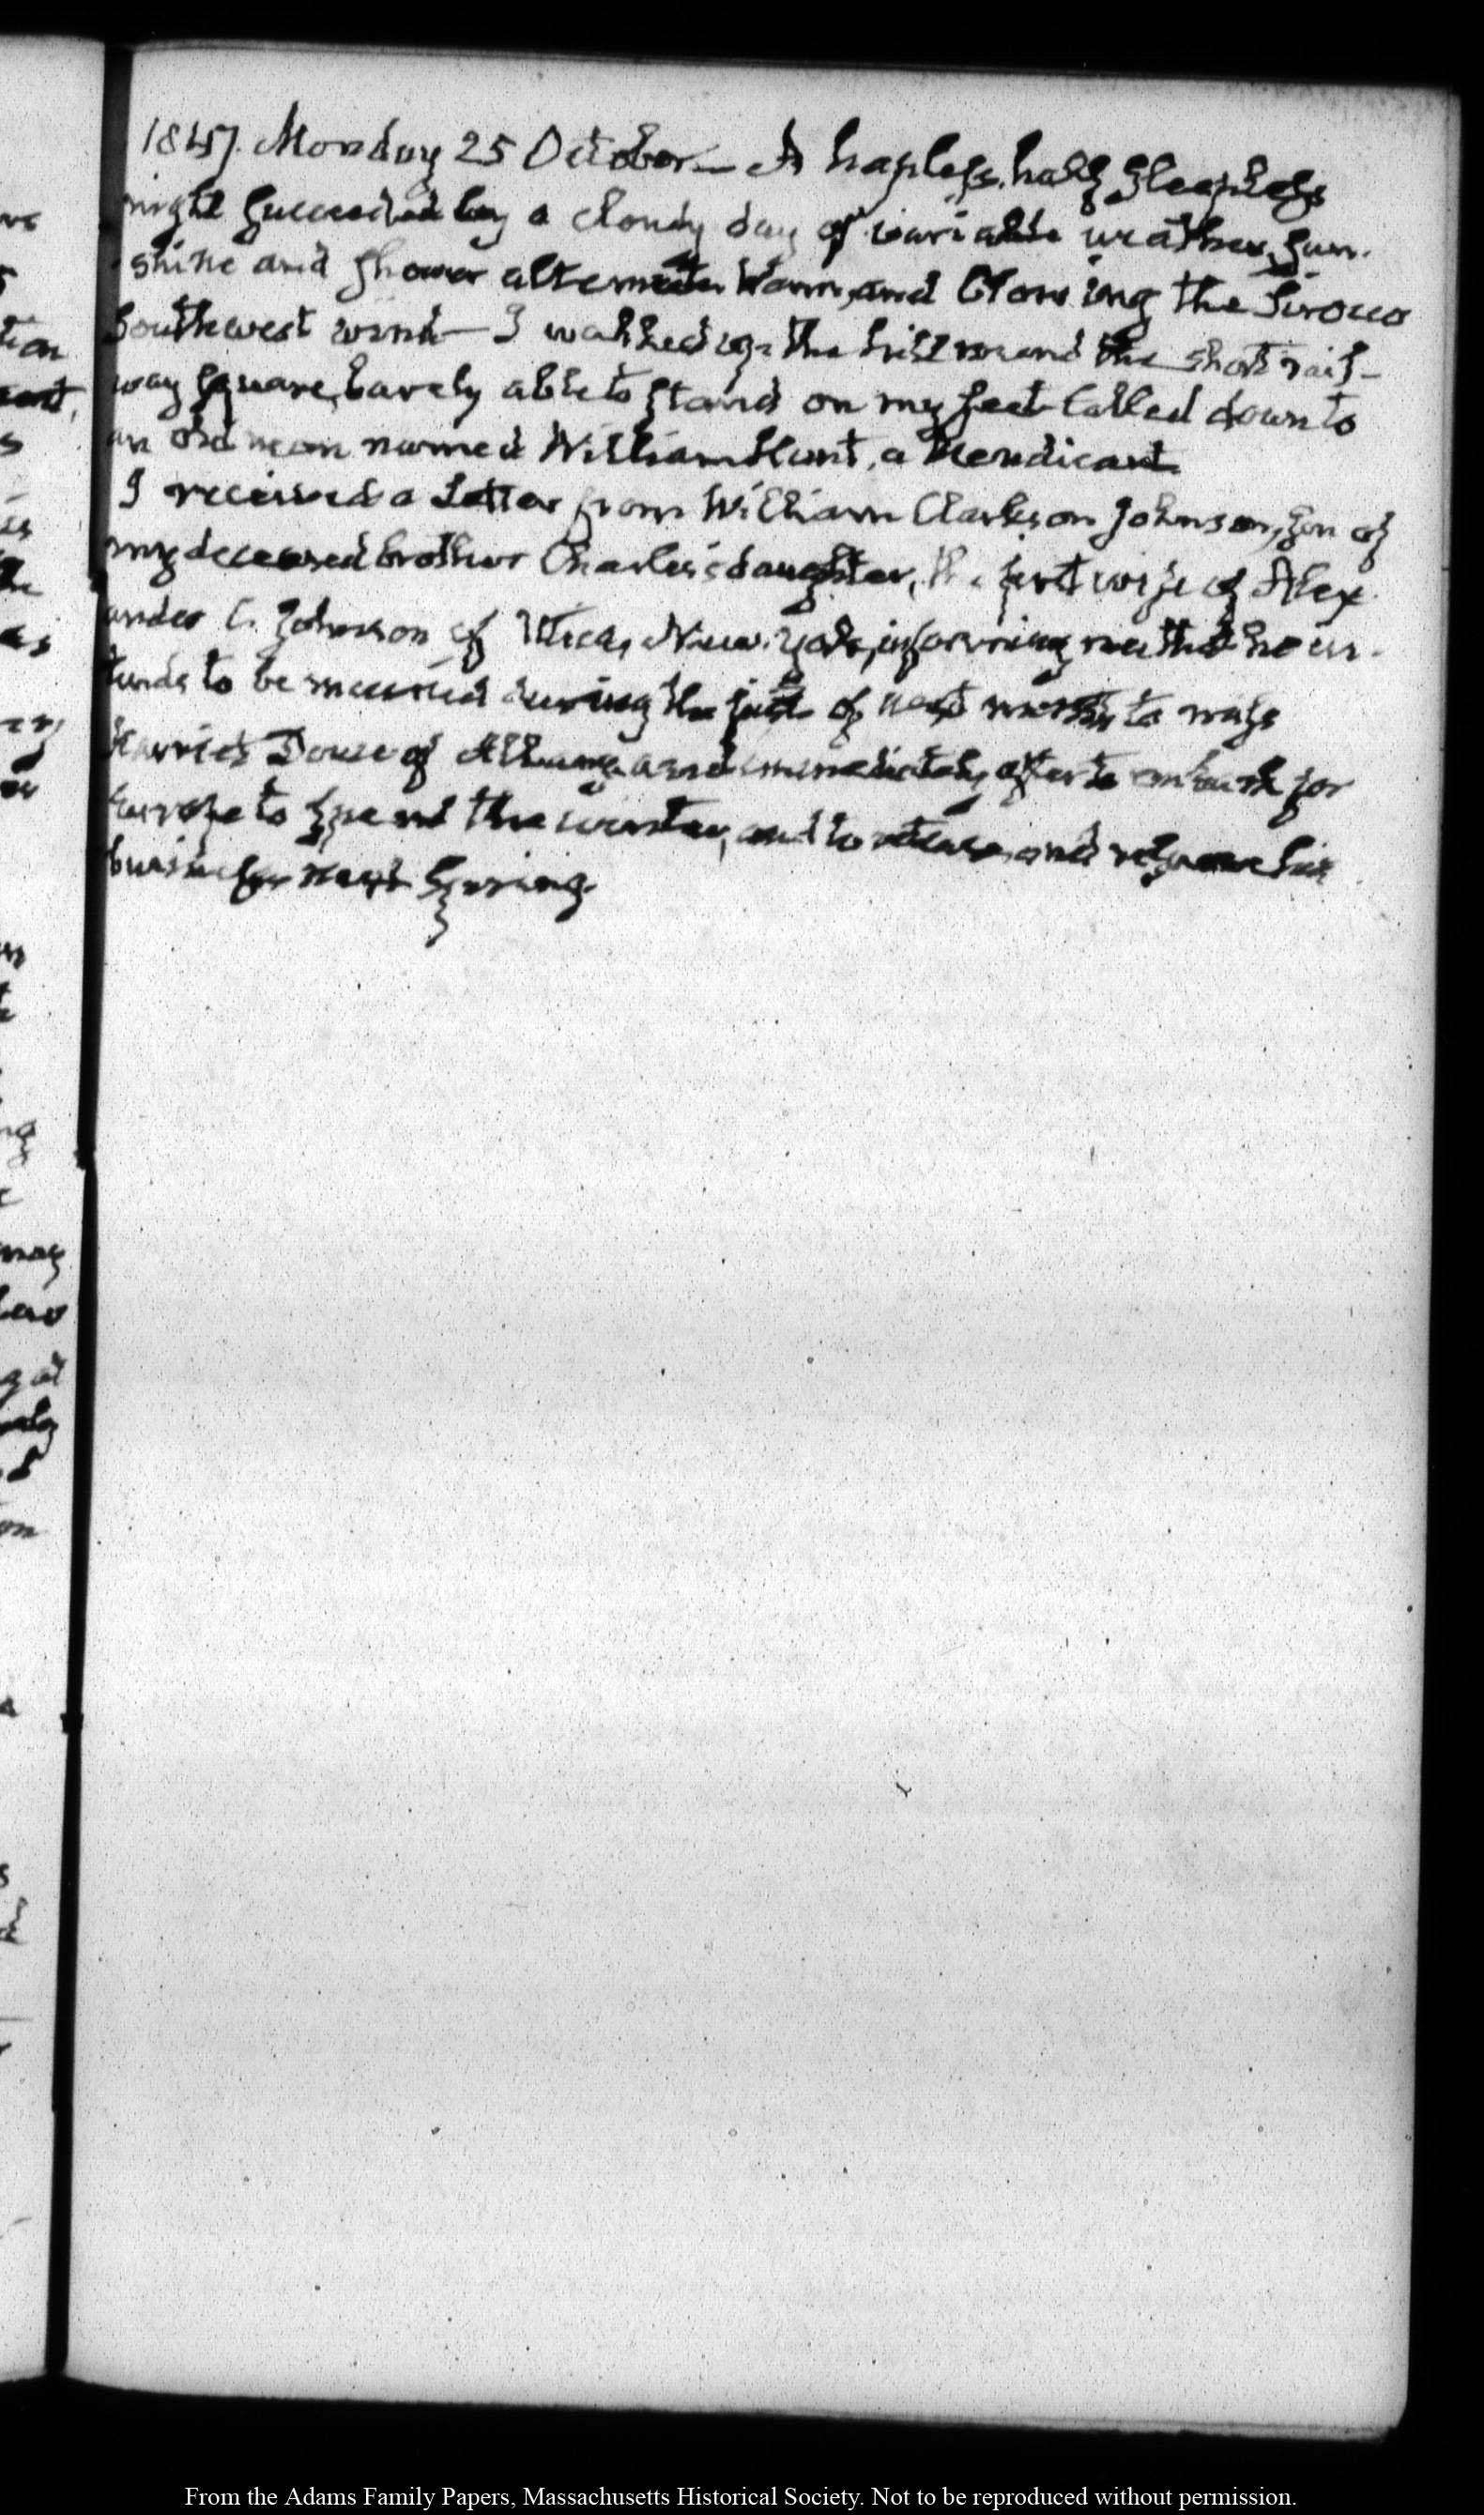 1847. Monday 25 October— A hapless, half sleepless
night succeeded by a cloudy day of variable weather, sun-
shine and shower alternate. Warm, and blowing the Sirocco
Southwest wind— I walked up the hill round the short rail-
way square, barely able to stand on my feet. Called down to
an old man named William Hunt, a Mendicant
I received a Letter from William Clarkson Johnson, son of
my deceased brother Charles's daughter, the first wife of Alex-
ander Johnson of Utica, New-York, informing me that he in-
tends to be married during the first of next month, to miss
Harriet of Albany and immediately after to embark for
Europe to spend the winter, and to return and resume his
business next Spring.
From the Adams Family Papers, Massachusetts Historical Society. Not to be reproduced without permission.